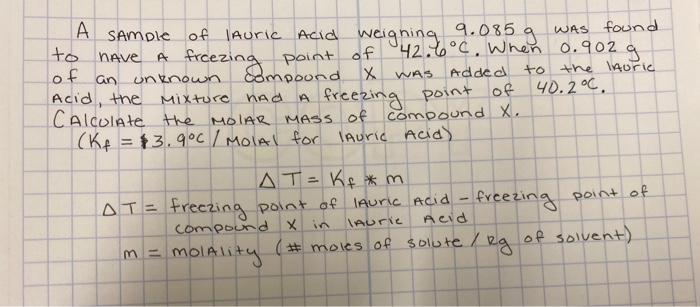 A SAMPLE of lAuric Acid weigning 9.085 g WAS found
to hAVE A freezing point of 42.6°C. When 0.902 g
of an unknown compound X WAS Added to the lAuric
Acid, the Mixture hAd A freezing point of 40.2°C.
CAlculAte the MOLAR MASS of compound X.
(Kf = 3.9°C / MolAl for lAuric Acid)
ΔT = Kf * m
ΔT = freezing point of lAuric Acid - freezing point of
compound X in lAuric Acid
m = molAlity (# moles of solute / kg of solvent)